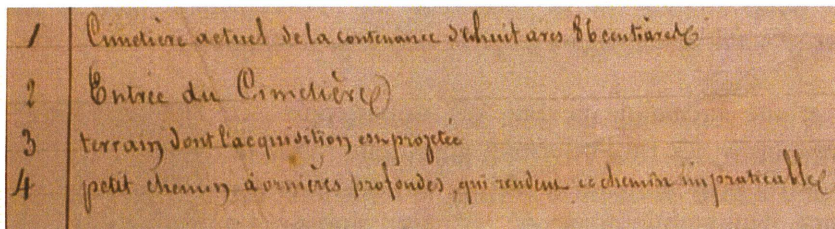 1 Cimetière actuel de la contenance de huit ares 86 centiares
2 Entrée du Cimetière
3 terrain dont l'acquisition est projetée
4 petit chemin à ornières profondes, qui rendent ce chemin impraticable